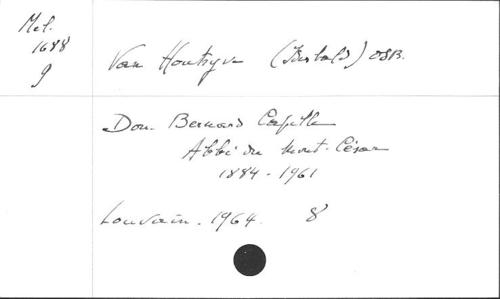 Mel.
1688
9
Van Houtryve (Idesbald) OSB.
Dom Bernard Capelle
Abbé du Mont-César
1884-1961
Louvain. 1964. 8